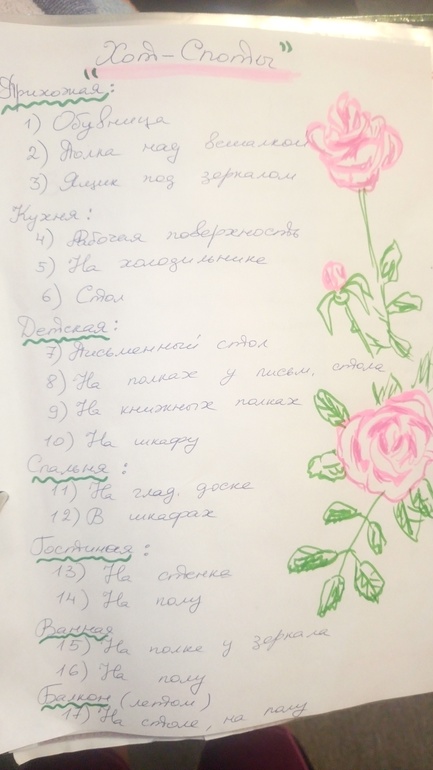 "Хот-Споты"
Прихожая:
1) Обувница
2) Полка над вешалкой
3) Ящик под зеркалом
Кухня:
4) Рабочая поверхность
5) На холодильнике
6) Стол
Детская:
7) Письменный стол
8) На полках у письм. стола
9) На книжных полках
10) На шкафу
Спальня:
11) На глад. доске
12) В шкафах
Гостиная:
13) На стенке
14) На полу
Ванная
15) На полке у зеркала
16) На полу
Балкон (летом)
17) На столе, на полу